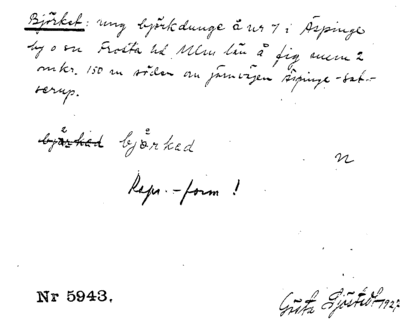 Björket: ung björkdunge å nr 7 i Äspinge
by o sn Frosta hd Mlm län å fig mem 2
mkr. 150 m söder om järnvägen Äspinge-Sat-
serup.
björkad björkad
n
Repr.-form!
Nr 5943.
Gösta Sjöstedt 1927